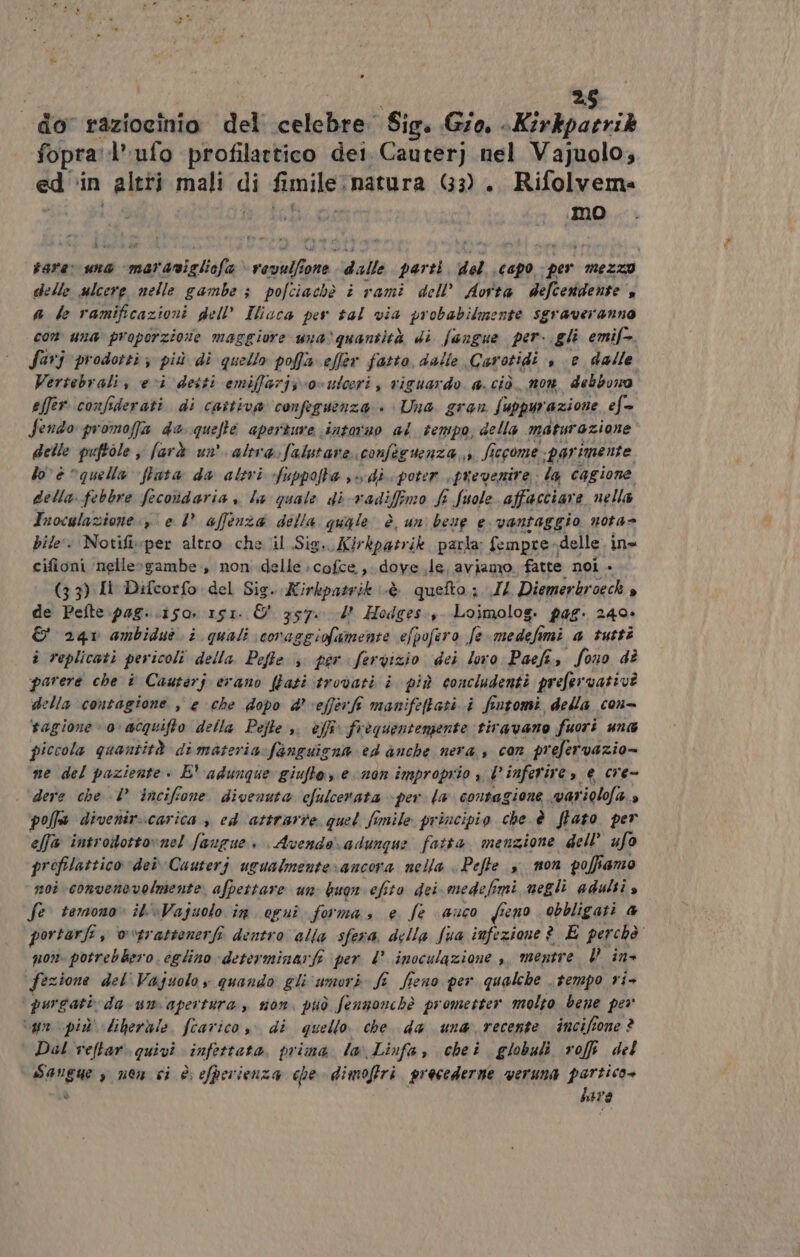 25
do raziocinio del celebre Sig. Gio. Kirkpatrik
ſopra l'uſo profilattico dei Cauterj nel Vajuolo,
ed in altri mali di ſimile natura (33). Riſolvem-
mo
tare una maraviglioſa revulſione dalle parti del capo per mezzo
delle ulcere nelle gambe; poſciachè i rami dell' Aorta deſcendente,
a le ramificazioni dell' Iliaca per tal via probabilmente sgraveranno
con una proporzione maggiore una quantità di ſangue per gli emiſ-
ſarj prodotti; più di quello poſſa eſſer fatto dalle Carotidi, e dalle
Vertebrali, e i detti emiſſarj, o ulceri, riguardo a ciò non debbono
eſſer conſiderati di cattiva conſeguenza. Una gran ſuppurazione eſ-
ſendo promoſſa da queſte aperture intorno al tempo della maturazione
delle puſtole, ſarà un' altra ſalutare conſeguenza, ſiccome parimente
lo è quella ſtata da altri ſuppoſta, di poter prevenire la cagione
della febbre ſecondaria, la quale di radiſſimo ſi ſuole affacciare nella
Inoculazione, e l' aſſenza della quale è un bene e vantaggio nota-
bile. Notiſi per altro che il Sig. Kirkpatrik parla ſempre delle in-
ciſioni nelle gambe, non delle coſce, dove le aviamo fatte noi.
(33) Il Diſcorſo del Sig. Kirkpatrik è queſto: Il Diemerbroech,
de Peſte pag. 150. 151. & 357. l' Hodges, Loimolog. pag. 240.
& 241 ambidue i quali coraggioſamente eſpoſero ſe medeſimi a tutti
i replicati pericoli della Peſte, per ſervizio dei loro Paeſi, ſono di
parere che i Cauterj erano ſtati trovati i più concludenti preſervativi
della contagione, e che dopo d' eſſerſi manifeſtati i ſintomi della con-
tagione o acquiſto della Peſte, eſſi frequentemente tiravano fuori una
piccola quantità di materia ſanguigna ed anche nera, con preſervazio-
ne del paziente. E' adunque giuſto, e non improprio, l' inferire, e cre-
dere che l' inciſione divenuta eſulcerata per la contagione varioloſa,
poſſa divenir carica, ed attrarre quel ſimile principio che è ſtato per
eſſa introdotto nel ſangue. Avendo adunque fatta menzione dell' uſo
profilattico dei Cauterj ugualmente ancora nella Peſte, non poſſiamo
noi convenevolmente aſpettare un buon eſito dei medeſimi negli adulti,
ſe temono il Vajuolo in ogni forma, e ſe anco ſieno obbligati a
portarſi, o trattenerſi dentro alla sfera della ſua infezione? E perchè
non potrebbero eglino determinarſi per l' inoculazione, mentre l' in-
fezione del Vajuolo, quando gli umori ſi ſieno per qualche tempo ri-
purgati da un apertura, non può ſennonchè prometter molto bene per
un più liberale ſcarico, di quello che da una recente inciſione?
Dal reſtar quivi infettata prima la Linfa, che i globuli roſſi del
Sangue, non ci è eſperienza che dimoſtri precederne veruna partico-
lare